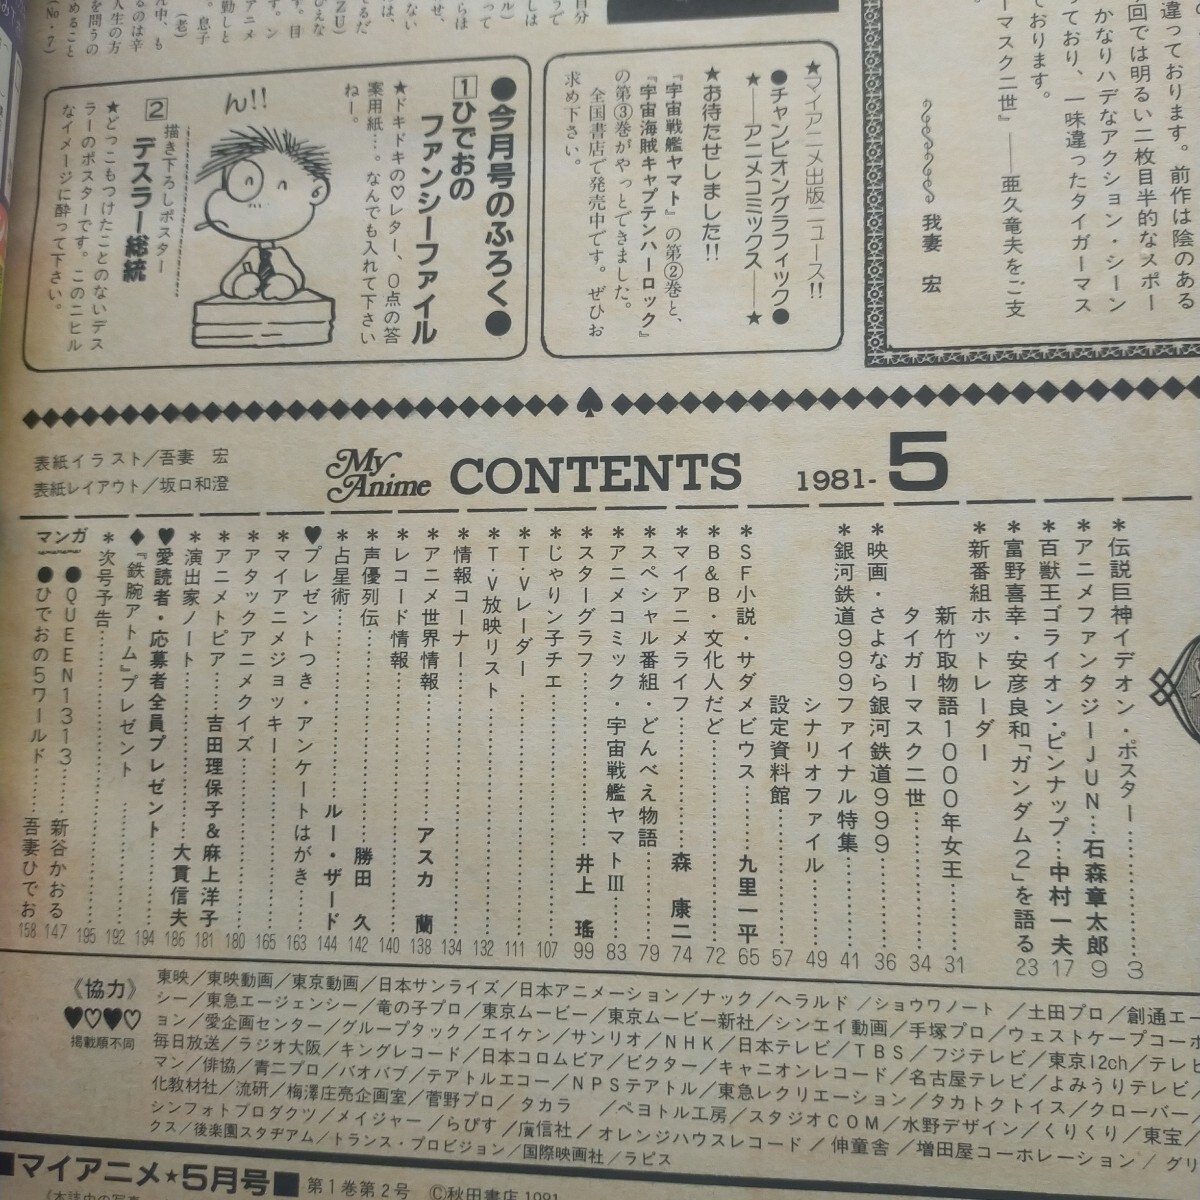 違っております。前作は陰のある
今回では明るい二枚目半的なスポー
かなりハデなアクション・シーン
っており、一味違ったタイガーマス
ーマスク二世』――亜久竜夫をご支
ております。
我妻 宏
★マイアニメ出版ニュース!!
●チャンピオングラフィック●
★――アニメコミックス――★
★お待たせしました!!
『宇宙戦艦ヤマト』の第②巻と、
『宇宙海賊キャプテンハーロック』
の第③巻がやっとできました。
全国書店で発売中です。ぜひお
求め下さい。
●今月号のふろく●
1 ひでおの
ファンシーファイル
★ドキドキの♡レター、0点の答
案用紙…。なんでも入れて下さい
ねー。
ん!!
2 描き下ろしポスター
デスラー総統
★どっこもつけたことのないデス
ラーのポスターです。このニヒル
なイメージに酔って下さい。
表紙イラスト/吾妻 宏
表紙レイアウト/坂口和澄
My Anime CONTENTS 1981-5
*伝説巨神イデオン・ポスター……3
*アニメファンタジーJUN…石森章太郎 9
*百獣王ゴライオン・ピンナップ…中村一夫 17
*富野喜幸・安彦良和「ガンダム2」を語る 23
*新番組ホットレーダー
新竹取物語1000年女王……31
タイガーマスク二世……34
*映画・さよなら銀河鉄道999……36
*銀河鉄道999ファイナル特集……41
シナリオファイル……49
設定資料館……57
*SF小説・サダメビウス……九里一平 65
*B&B・文化人だど……72
*マイアニメライフ……森 康二 74
*スペシャル番組・どんべえ物語……79
*アニメコミック・宇宙戦艦ヤマトⅢ……83
*スターグラフ……井上 瑤 99
*じゃりン子チエ……107
*T・Vレーダー……111
*T・V放映リスト……132
*情報コーナー……134
*アニメ世界情報……アスカ 蘭 138
*レコード情報……140
*声優列伝……勝田 久 142
*占星術……ルー・ザード 144
♥プレゼントつき・アンケートはがき……163
*マイアニメジョッキー……165
*アタックアニメクイズ……180
*アニメトピア……吉田理保子&麻上洋子 181
*演出家ノート……大貫信夫 186
♥愛読者・応募者全員プレゼント 194
◆『鉄腕アトム』プレゼント……192
*次号予告……195
マンガ
●QUEEN1313……新谷かおる 147
●ひでおの5ワールド……吾妻ひでお 158
《協力》
♥♡♥♡
掲載順不同
東映/東映動画/東京動画/日本サンライズ/日本アニメーション/ナック/ヘラルド/ショウワノート/土田プロ/創通エー
シー/東急エージェンシー/竜の子プロ/東京ムービー/東京ムービー新社/シンエイ動画/手塚プロ/ウェストケープコーポ
ョン/愛企画センター/グループタック/エイケン/サンリオ/NHK/日本テレビ/TBS/フジテレビ/東京12ch/テレビ
毎日放送/ラジオ大阪/キングレコード/日本コロムビア/ビクター/キャニオンレコード/名古屋テレビ/よみうりテレビ
マン/俳協/青二プロ/バオバブ/テアトルエコー/NPSテアトル/東急レクリエーション/タカトクトイス/クローバー
化教材社/流研/梅澤庄亮企画室/菅野プロ/タカラ/ペヨトル工房/スタジオCOM/水野デザイン/くりくり/東宝
シンフォトプロダクツ/メイジャー/らびす/廣信社/オレンジハウスレコード/伸童舎/増田屋コーポレーション/グリ
クス/後楽園スタヂアム/トランス・プロビジョン/国際映画社/ラピス
■マイアニメ★5月号■ 第1巻第2号 ©秋田書店1981